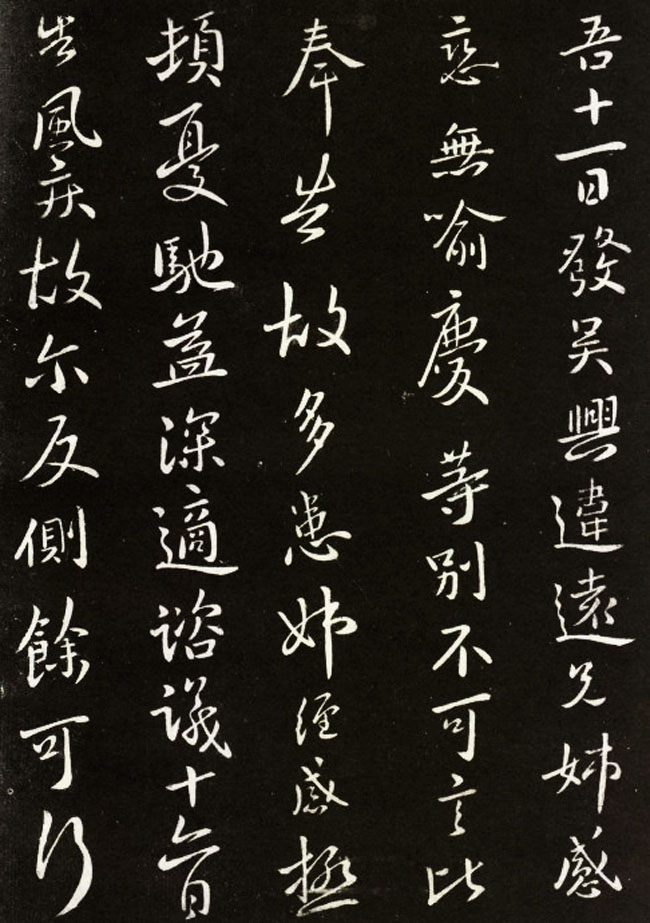 吾十一日發吳興違遠兄姊感
戀無喻慶等別不可言比
奉告故多患姊經感極
頓憂馳益深適諮議十六日
告風疾故尒反側餘可行